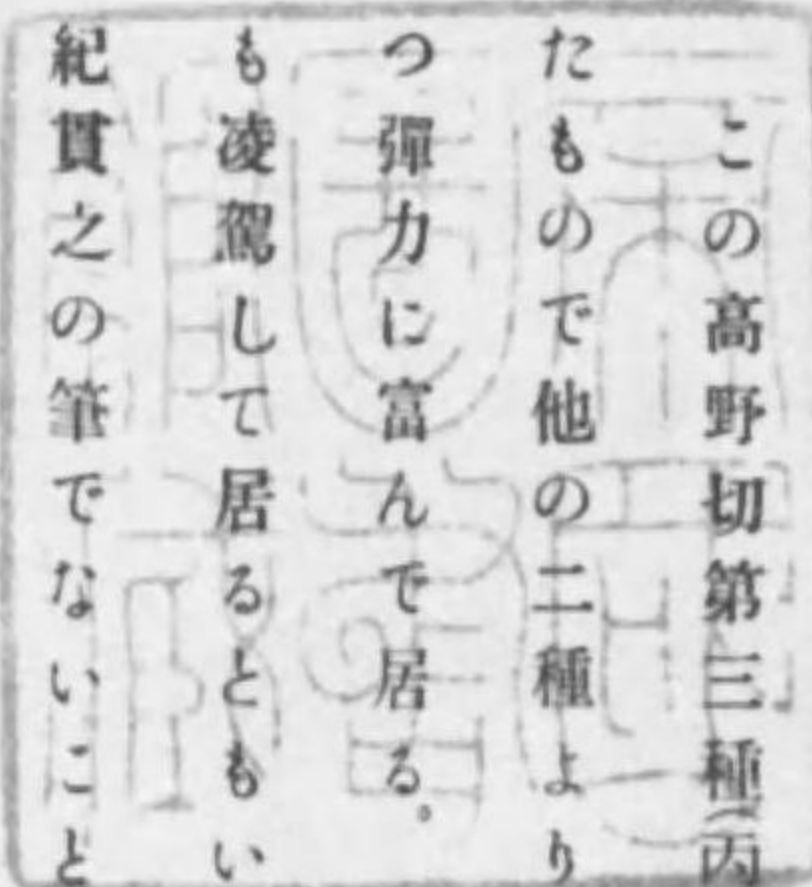 この高野切第三種(丙
たもので他の二種より
つ彈力に富んで居る。
も凌駕して居るともい
紀貫之の筆でないこと